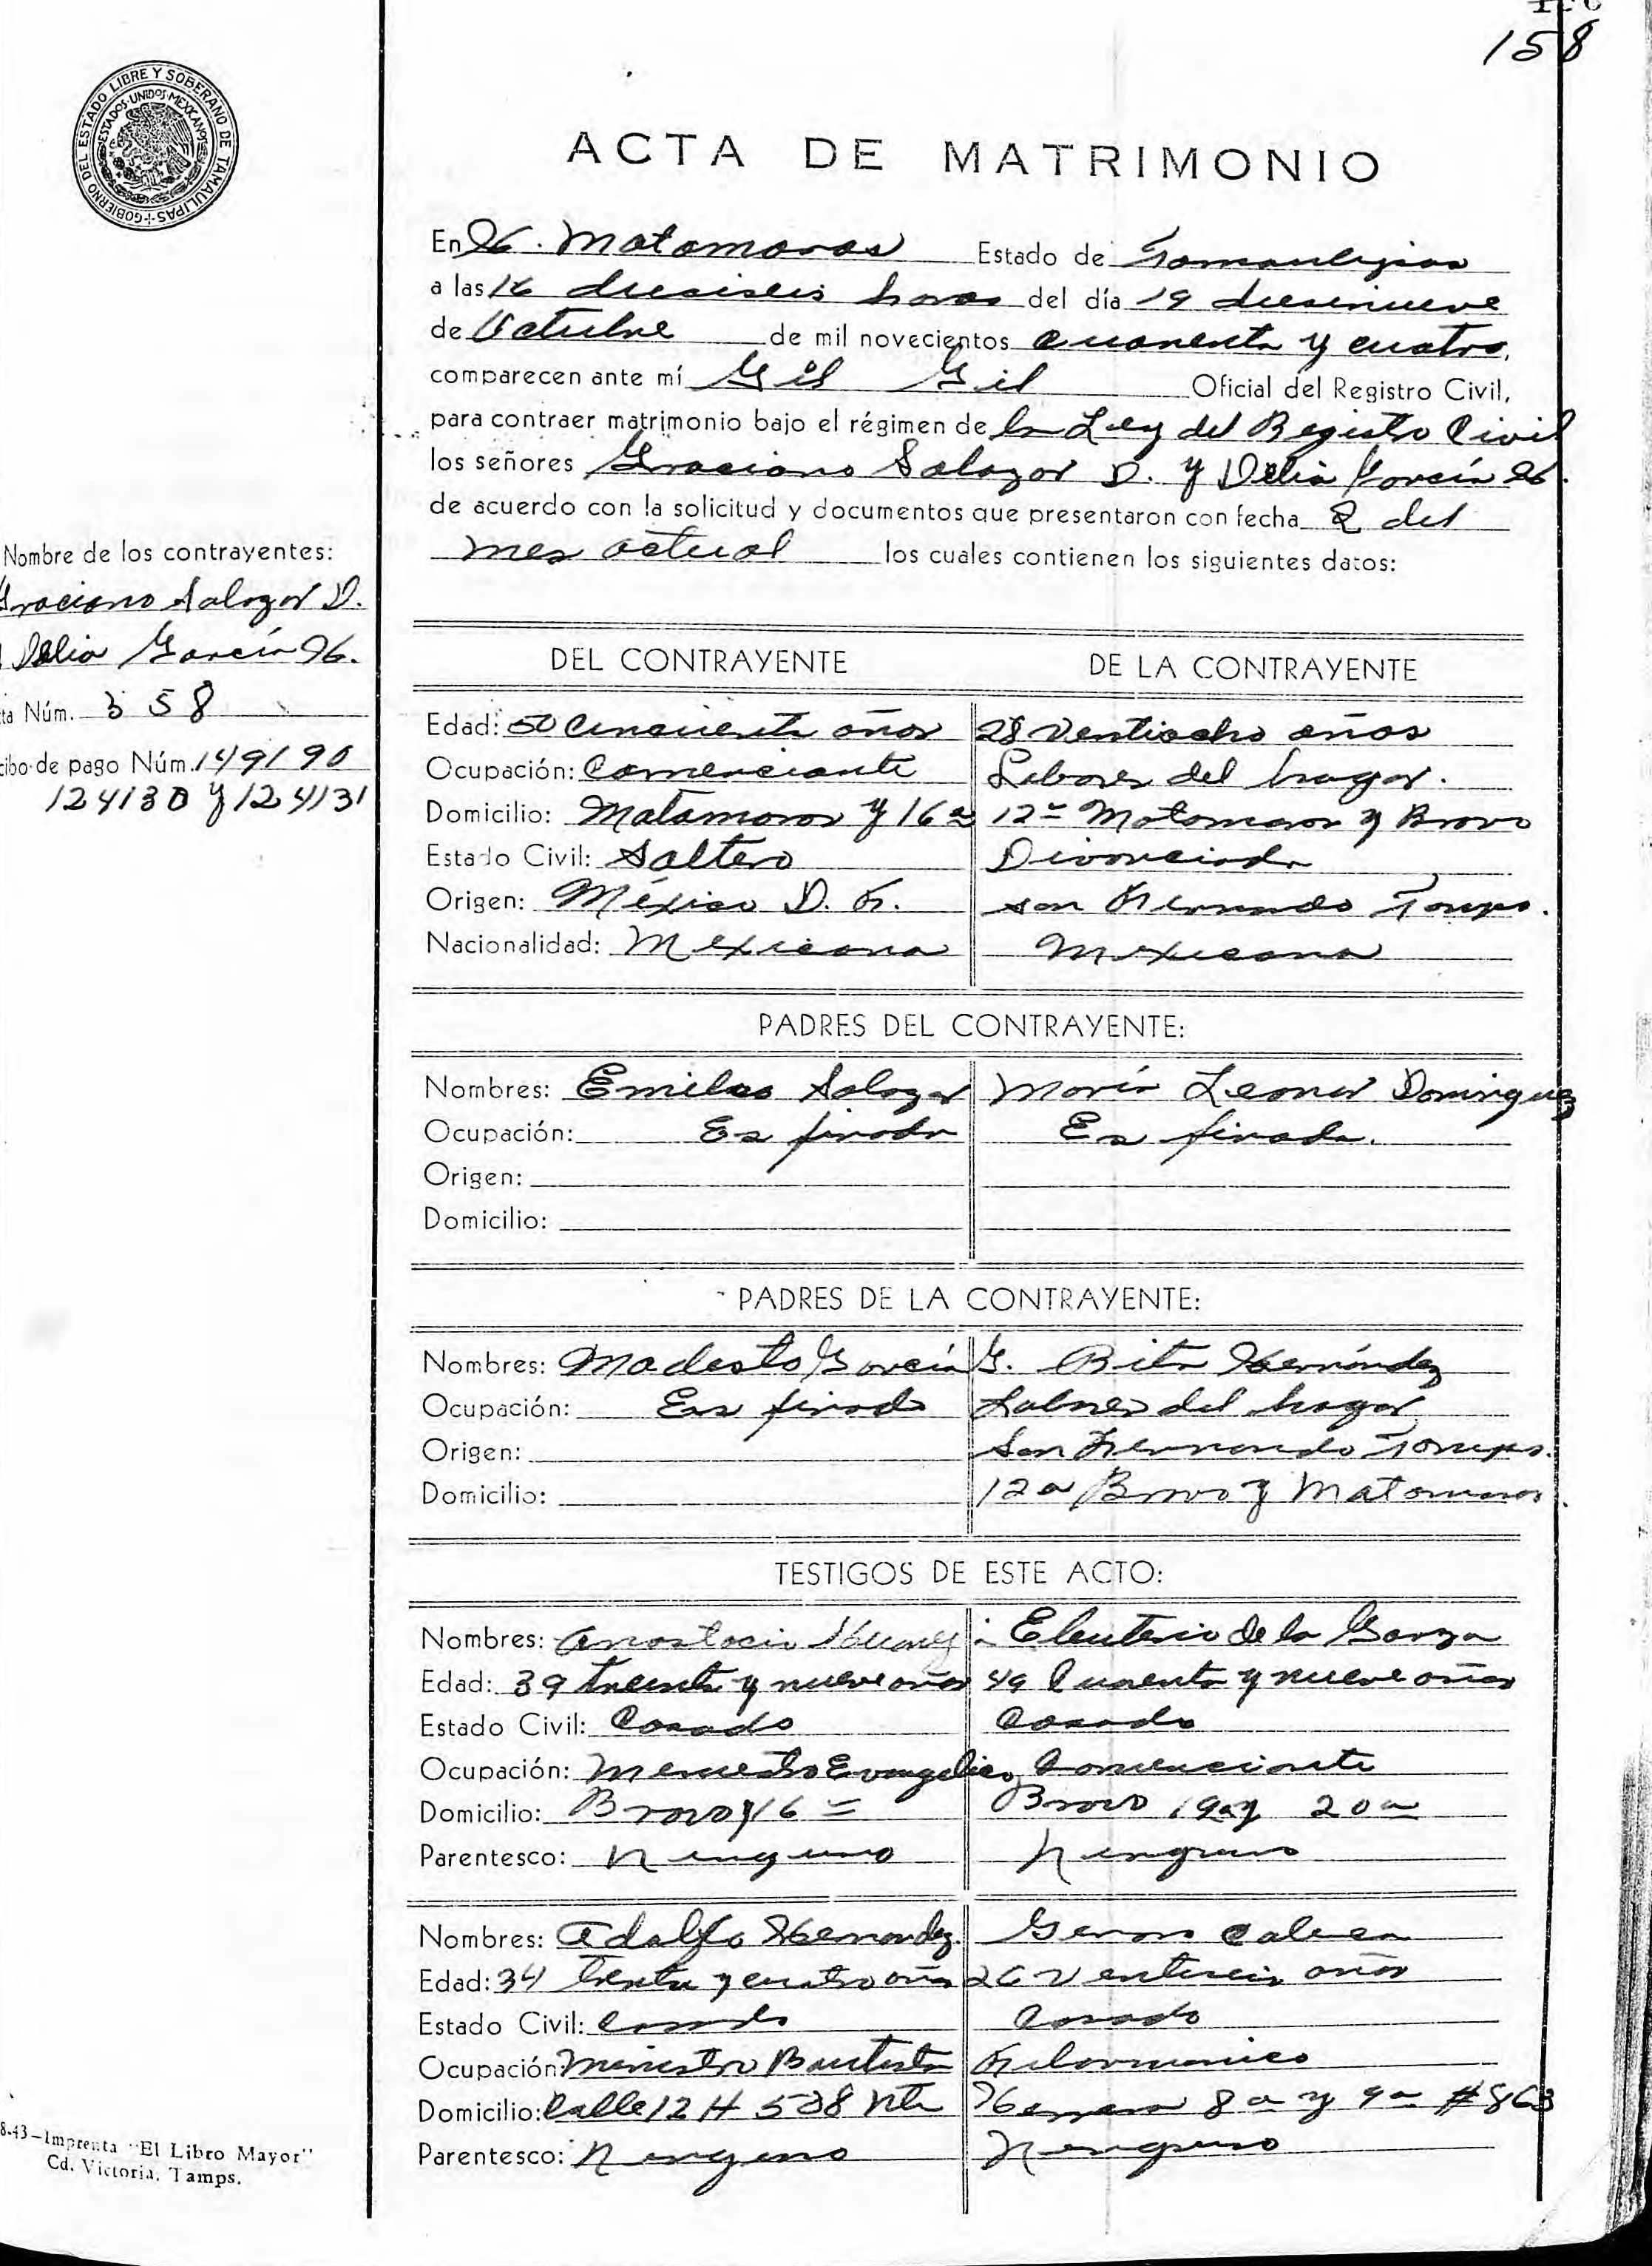 158
GOBIERNO DEL ESTADO LIBRE Y SOBERANO DE TAMAULIPAS
ESTADOS UNIDOS MEXICANOS
ACTA DE MATRIMONIO
En H. Matamoros Estado de Tamaulipas
a las 16 dieciseis horas del día 19 diecinueve
de Octubre de mil novecientos cuarenta y cuatro,
comparecen ante mí Gil Gil Oficial del Registro Civil,
para contraer matrimonio bajo el régimen de la Ley del Registro Civil
los señores Graciano Salazar D. y Delia García H.
de acuerdo con la solicitud y documentos que presentaron con fecha 2 del
mes actual los cuales contienen los siguientes datos:
Nombre de los contrayentes:
Graciano Salazar D.
Delia García H.
ta Núm. 358
cibo de pago Núm. 149190
124130 y 124131
DEL CONTRAYENTE DE LA CONTRAYENTE
Edad: 50 cincuenta años 28 ventiocho años
Ocupación: Comerciante Labores del hogar.
Domicilio: Matamoros y 16a 12a Matamoros y Bravo
Estado Civil: Soltero Divorciada
Origen: México D. F. San Fernando Tamps.
Nacionalidad: Mexicana Mexicana
PADRES DEL CONTRAYENTE:
Nombres: Emilio Salazar María Leonor Dominguez
Ocupación: Es finado Es finada.
Origen:
Domicilio:
PADRES DE LA CONTRAYENTE:
Nombres: Modesto García G. Rita Hernández
Ocupación: Es finado Labores del hogar
Origen: San Fernando Tamps.
Domicilio: 12a Bravo y Matamoros.
TESTIGOS DE ESTE ACTO:
Nombres: Anastacio Eleuterio de la Garza
Edad: 39 treinta y nueve años 49 Cuarenta y nueve años
Estado Civil: Casado Casado
Ocupación: Evangelico Comerciante
Domicilio: Bravo y 16a Bravo 19a y 20a
Parentesco: Ninguno Ninguno
Nombres: Adolfo Hernandez.
Edad: 34 trenta y cuatro años 26 ventiseis años
Estado Civil: Casado Casado
Ocupación: Ministro Bautista Filarmonico
Domicilio: Calle 12 # 508 Nte 8a y 9a # 863
Parentesco: Ninguno Ninguno
8-43—Imprenta "El Libro Mayor"
Cd. Victoria, Tamps.